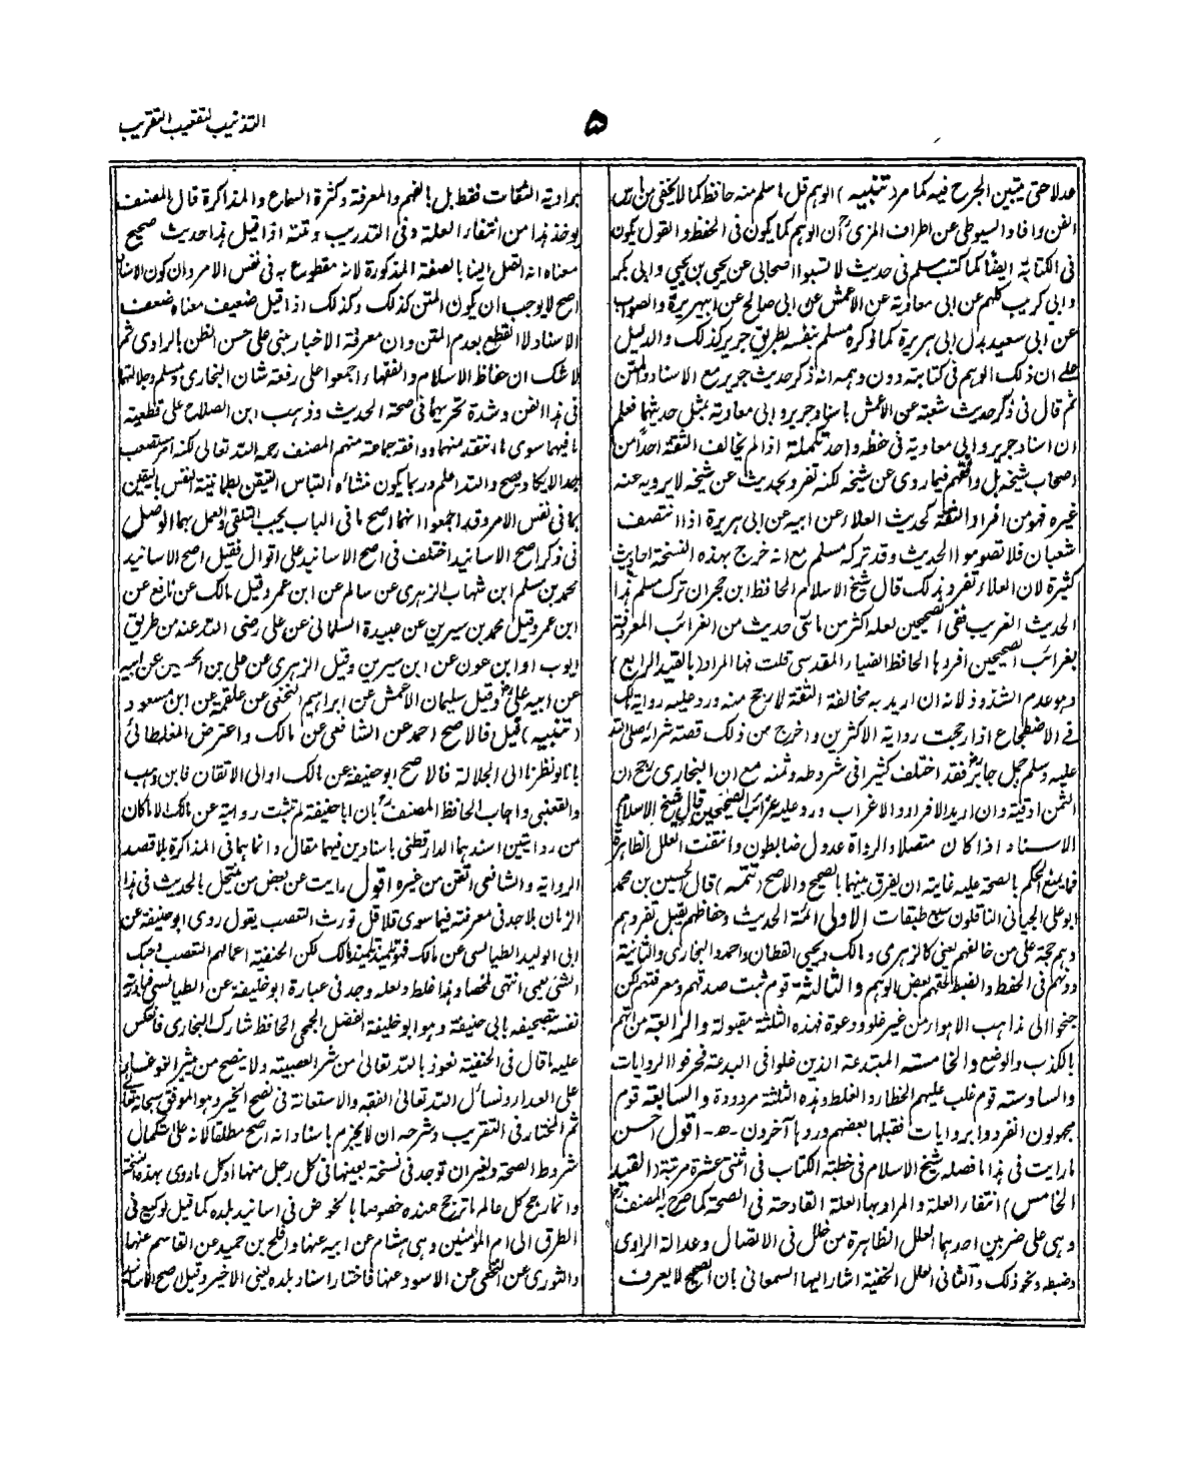 التذنيب لتعقيب التقريب
۵
عدلا حتى يتبين الجرح فيه كما مر (تنبيه) الوهم قل ما سلم منه حافظ كما لا يخفى من
الفن وافاد السيوطي عن اطراف المزي ان الوهم كما يكون في الحفظ والقول يكون
في الكتابة ايضا كما كتب مسلم في حديث لا تسبوا اصحابي عن يحيى بن يحيى وابي بكر
وابي كريب كلهم عن ابي معاوية عن الاعمش عن ابي صالح عن ابي هريرة والصواب
عن ابي سعيد بدل ابي هريرة كما ذكره مسلم بنفسه بطريق جرير كذلك والدليل
على ان ذلك الوهم في كتابته دون وهمه انه ذكر حديث جرير مع الاسناد والمتن
ثم قال في ذكر حديث شعبة عن الاعمش باسناد جرير وابي معاوية بمثل حديثهما فعلم
ان اسناد جرير وابي معاوية في حفظه واحد تكملة اذا لم يخالف الثقة احدا من
اصحاب شيخه بل وافقهم فيما روى عن شيخه لكنه تفرد بحديث عن شيخه لا يرويه عنه
غيره فهو من افراد الثقة كحديث العلاء عن ابيه عن ابي هريرة اذا انتصف
شعبان فلا تصوموا الحديث وقد تركه مسلم مع انه خرج بهذه النسخة احاديث
كثيرة لان العلاء تفرد بذلك قال شيخ الاسلام الحافظ ابن حجر ان ترك مسلم هذا
الحديث الغريب ففي الصحيحين لعله اكثر من مائتي حديث من الغرائب المعروفة
بغرائب الصحيحين افردها الحافظ الضياء المقدسي قلت فما المراد (بالقيد الرابع)
وهو عدم الشذوذ لانه ان اريد به مخالفة الثقة لارجح منه ورد عليه رواية
في الاضطجاع اذا رجحت رواية الاكثرين واخرج من ذلك قصة شرائه صلى الله
عليه وسلم جمل جابر فقد اختلف كثيرا في شروطه وثمنه مع ان البخاري يرجح ان
الثمن اوقية وان اريد الافراد والاغراب ورد عليه غرائب الصحيحين قال شيخ الاسلام
الاسناد اذا كان متصلا والرواة عدول ضابطون وانتفت العلل الظاهرة
فما يمنع الحكم بالصحة عليه غايته ان يفرق بينهما بالصحيح والاصح (تتمه) قال الحسين بن محمد
ابو علي الجياني الناقلون سبع طبقات الاولى ائمة الحديث وحفاظهم يقبل تفردهم
وهم حجة على من خالفهم يعني كالزهري ومالك ويحيى القطان واحمد والبخاري والثانية
دونهم في الحفظ والضبط لحقهم بعض الوهم والثالثة قوم ثبت صدقهم ومعرفتهم لكن
جنحوا الى مذاهب الاهواء من غير غلو ودعوة فهذه الثلثة مقبولة والرابعة من اتهم
بالكذب والوضع والخامسة المبتدعة الذين غلوا في البدعة فحرفوا الروايات
والسادسة قوم غلب عليهم الخطاء والغلط وهذه الثلثة مردودة والسابعة قوم
مجهولون انفردوا بروايات فقبلها بعضهم وردها آخرون -ه- اقول احسن
ما رايت في هذا ما فصله شيخ الاسلام في خطبة الكتاب في اثنتي عشرة مرتبة (القيد
الخامس) انتفاء العلة والمراد بها العلة القادحة في الصحة كما صرح به المصنف
وهي على ضربين احدهما العلل الظاهرة من خلل في الاتصال وعدالة الراوي
وضبطه ونحو ذلك والثاني العلل الخفية اشار اليها السمعاني بان الصحيح لا يعرف
برواية الثقات فقط بل بالفهم والمعرفة وكثرة السماع والمذاكرة قال المصنف
يوخذ هذا من انتفاء العلة وفي التدريب وقنة اذا قيل هذا حديث صحيح
معناه انه اتصل الينا بالصفة المذكورة لا انه مقطوع به في نفس الامر وان كون الاسناد
اصح لا يوجب ان يكون المتن كذلك وكذلك اذا قيل ضعيف معناه ضعف
الاسناد لا القطع بعدم المتن وان معرفة الاخبار بني على حسن الظن بالراوي ثم
لا شك ان حفاظ الاسلام والفقهاء اجمعوا على رفعة شان البخاري ومسلم وجلالتهما
في هذا الفن وشدة تحريهما في صحة الحديث وذهب ابن الصلاح على قطعية
ما فيهما سوى ما انتقد منهما ووافقه جماعة منهم المصنف رحمه الله تعالى لكنه امر تصعب
جدا لا يكاد يصح والله اعلم وربما يكون منشاه التباس التيقن بطمانينة النفس باليقين
بما في نفس الامر وقد اجمعوا انهما اصح ما في الباب يجب التلقي والعمل بهما الوصل
في ذكر اصح الاسانيد اختلف في اصح الاسانيد على اقوال فقيل اصح الاسانيد
محمد بن مسلم ابن شهاب الزهري عن سالم عن ابن عمر وقيل مالك عن نافع عن
ابن عمر وقيل محمد بن سيرين عن عبيدة السلماني عن علي رضى الله عنه من طريق
ايوب او ابن عون عن ابن سيرين وقيل الزهري عن علي بن الحسين عن ابيه
عن ابيه علي وقيل سليمان الاعمش عن ابراهيم النخعي عن علقمة عن ابن مسعود
(تنبيه) قيل فالاصح احمد عن الشافعي عن مالك واعترض المغلطائي
بانا لو نظرنا الى الجلالة فالاصح ابو حنيفة عن مالك او الى الاتقان فابن وهب
والقعنبي واجاب الحافظ المصنف بان ابا حنيفة لم تثبت روايته عن مالك الا ما كان
من روايتين اسندهما الدارقطني باسنادين فيهما مقال وانما هما في المذاكرة بلا قصد
الرواية والشافعي اتقن من غيره اقول رايت عن بعض من منتحل بالحديث في هذا
الزمان بلا جد في معرفته فيما سوى قلا قل تورث التعصب يقول روى ابو حنيفة عن
ابي الوليد الطيالسي عن مالك فهو تلميذ تلميذ مالك لكن الحنفية اعماهم التعصب وحبك
الشئ يعمي انتهى ملخصا وهذا غلط ولعله وجد في عبارة ابو خليفة عن الطيالسي
نفسه تصحيفه بابي حنيفة وهو ابو خليفة الفضل الجمحي الحافظ شارك البخاري فانعكس
عليه ما قال في الحنفية نعوذ بالله تعالى من شر العصبية ولا ينصح من مثير
على العداء ونسأل الله تعالى الفقه والاستعانة في نصح الخير وهو الموفق سبحانه تعالى
ثم المختار في التقريب وشرحه ان لا يجزم باسناد انه اصح مطلقا لانه على استكمال
شروط الصحة ولغير ان توجد في نسخة بعينها في كل رجل منها او كل ما روى بهذه
وانما رجح كل عالم ما ترجح عنده خصوصا بالخوض في اسانيد بلده كما قيل لوكيع في
الطرق الى ام المؤمنين وهي هشام عن ابيه عنها وافلح بن حميد عن القاسم عنها
والثوري عن النخعي عن الاسود عنها فاختار اسناد بلده يعني الاخير وقيل اصح الاسانيد